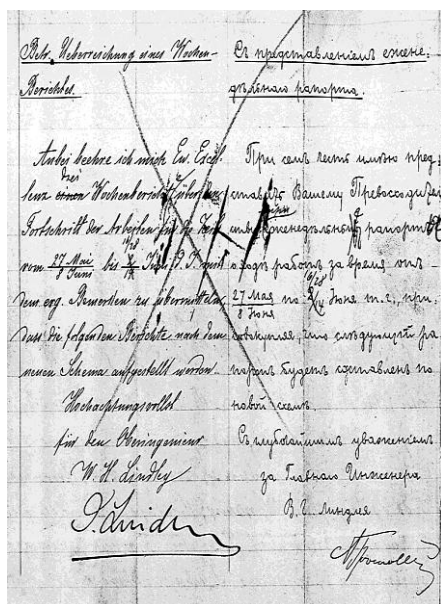 Betr. Ueberreichung eines Wochen-
Berichtes.
Anbei beehre ich mich Ew. Excel-
lenz drei einen Wochenberichte über den
Fortschritt der Arbeiten für die Zeit
vom 27 Mai / 8 Juni bis Juni d. J. mit
dem erg. Bemerken zu übermitteln,
dass die folgenden Berichte nach dem
neuen Schema aufgestellt werden.
Hochachtungsvollst
für den Oberingenieur
W. H. Lindley
Съ представленіемъ ежене-
дѣльнаго рапорта.
При семъ честь имѣю пред-
ставить Вашему Превосходитель-
ству еженедѣльный рапортъ
о ходѣ работъ за время отъ
27 Мая / 8 Юня по Юня т. г., при-
совокупляя, что слѣдующій ра-
портъ будетъ составленъ по
новой схемѣ.
Съ глубочайшимъ уваженіемъ
за Главнаго Инженера
В. Г. Линдлея